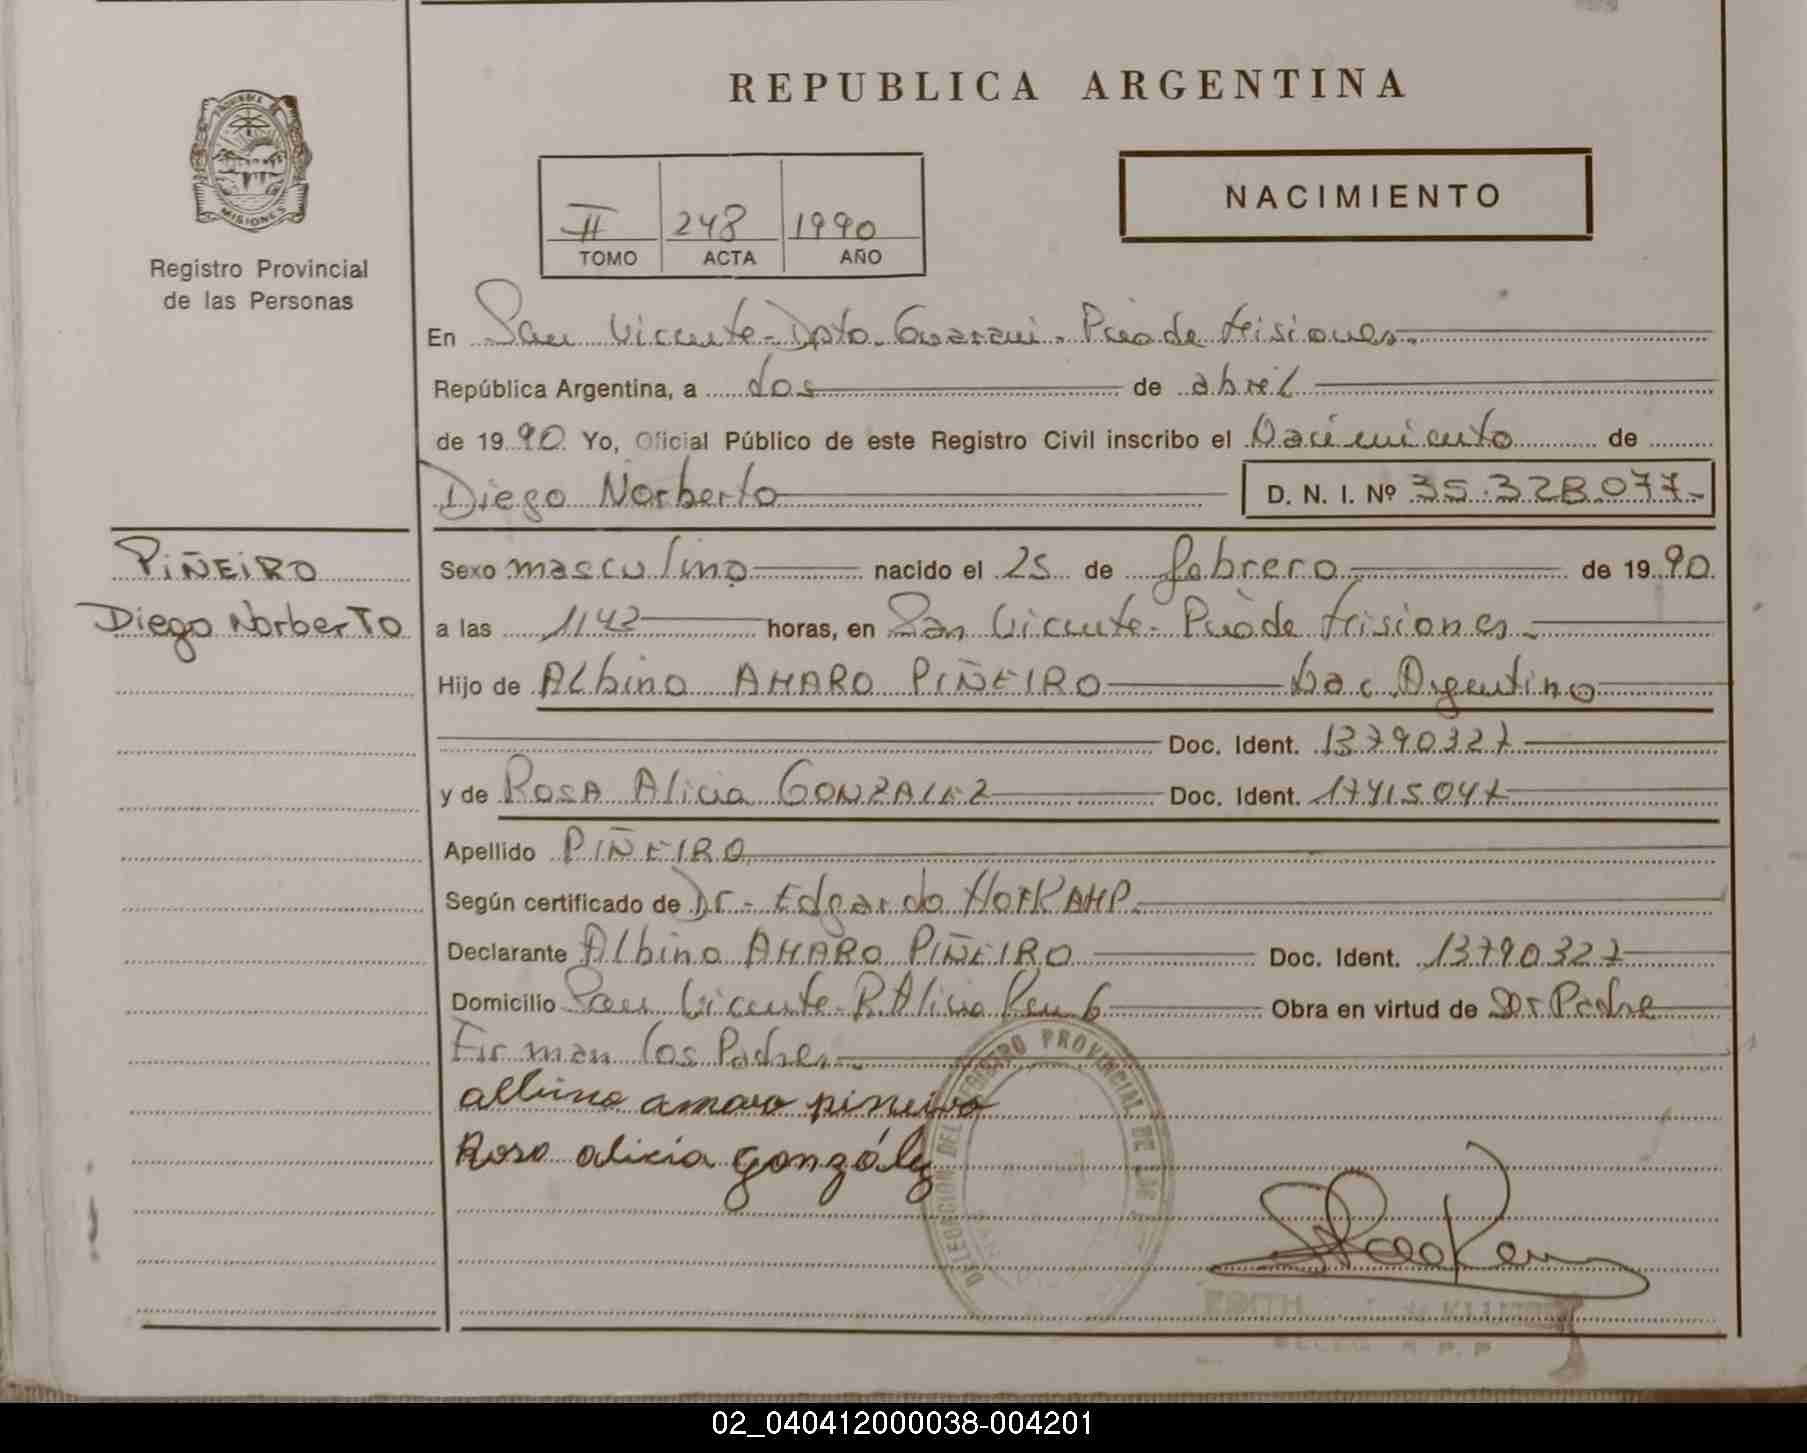 REPUBLICA ARGENTINA
PROVINCIA DE
MISIONES
Registro Provincial
de las Personas
II 248 1990
TOMO ACTA AÑO
NACIMIENTO
En San Vicente - Dpto. Guarani - Pcia de Misiones.
República Argentina, a dos de abril
de 1990 Yo, Oficial Público de este Registro Civil inscribo el Nacimiento de
Diego Norberto D. N. I. Nº 35.328.077-
PIÑEIRO
Diego NorberTO
Sexo masculino nacido el 25 de febrero de 1990
a las 1142 horas, en San Vicente - Pcia de Misiones -
Hijo de Albino AMARO PIÑEIRO Nac. Argentino
Doc. Ident. 13790327
y de ROSA Alicia GONZALEZ Doc. Ident. 17415047
Apellido PIÑEIRO
Según certificado de Dr - Edgardo HOFKAMP.
Declarante Albino AMARO PIÑEIRO Doc. Ident. 13790327
Domicilio San Vicente - P. Alicia Km 6 Obra en virtud de Ser Padre
Firman los Padres
albino amaro pineiro
Rosa alicia gonzález
DELEGACION DEL REGISTRO PROVINCIAL DE LAS
EDITH de
02_040412000038-004201